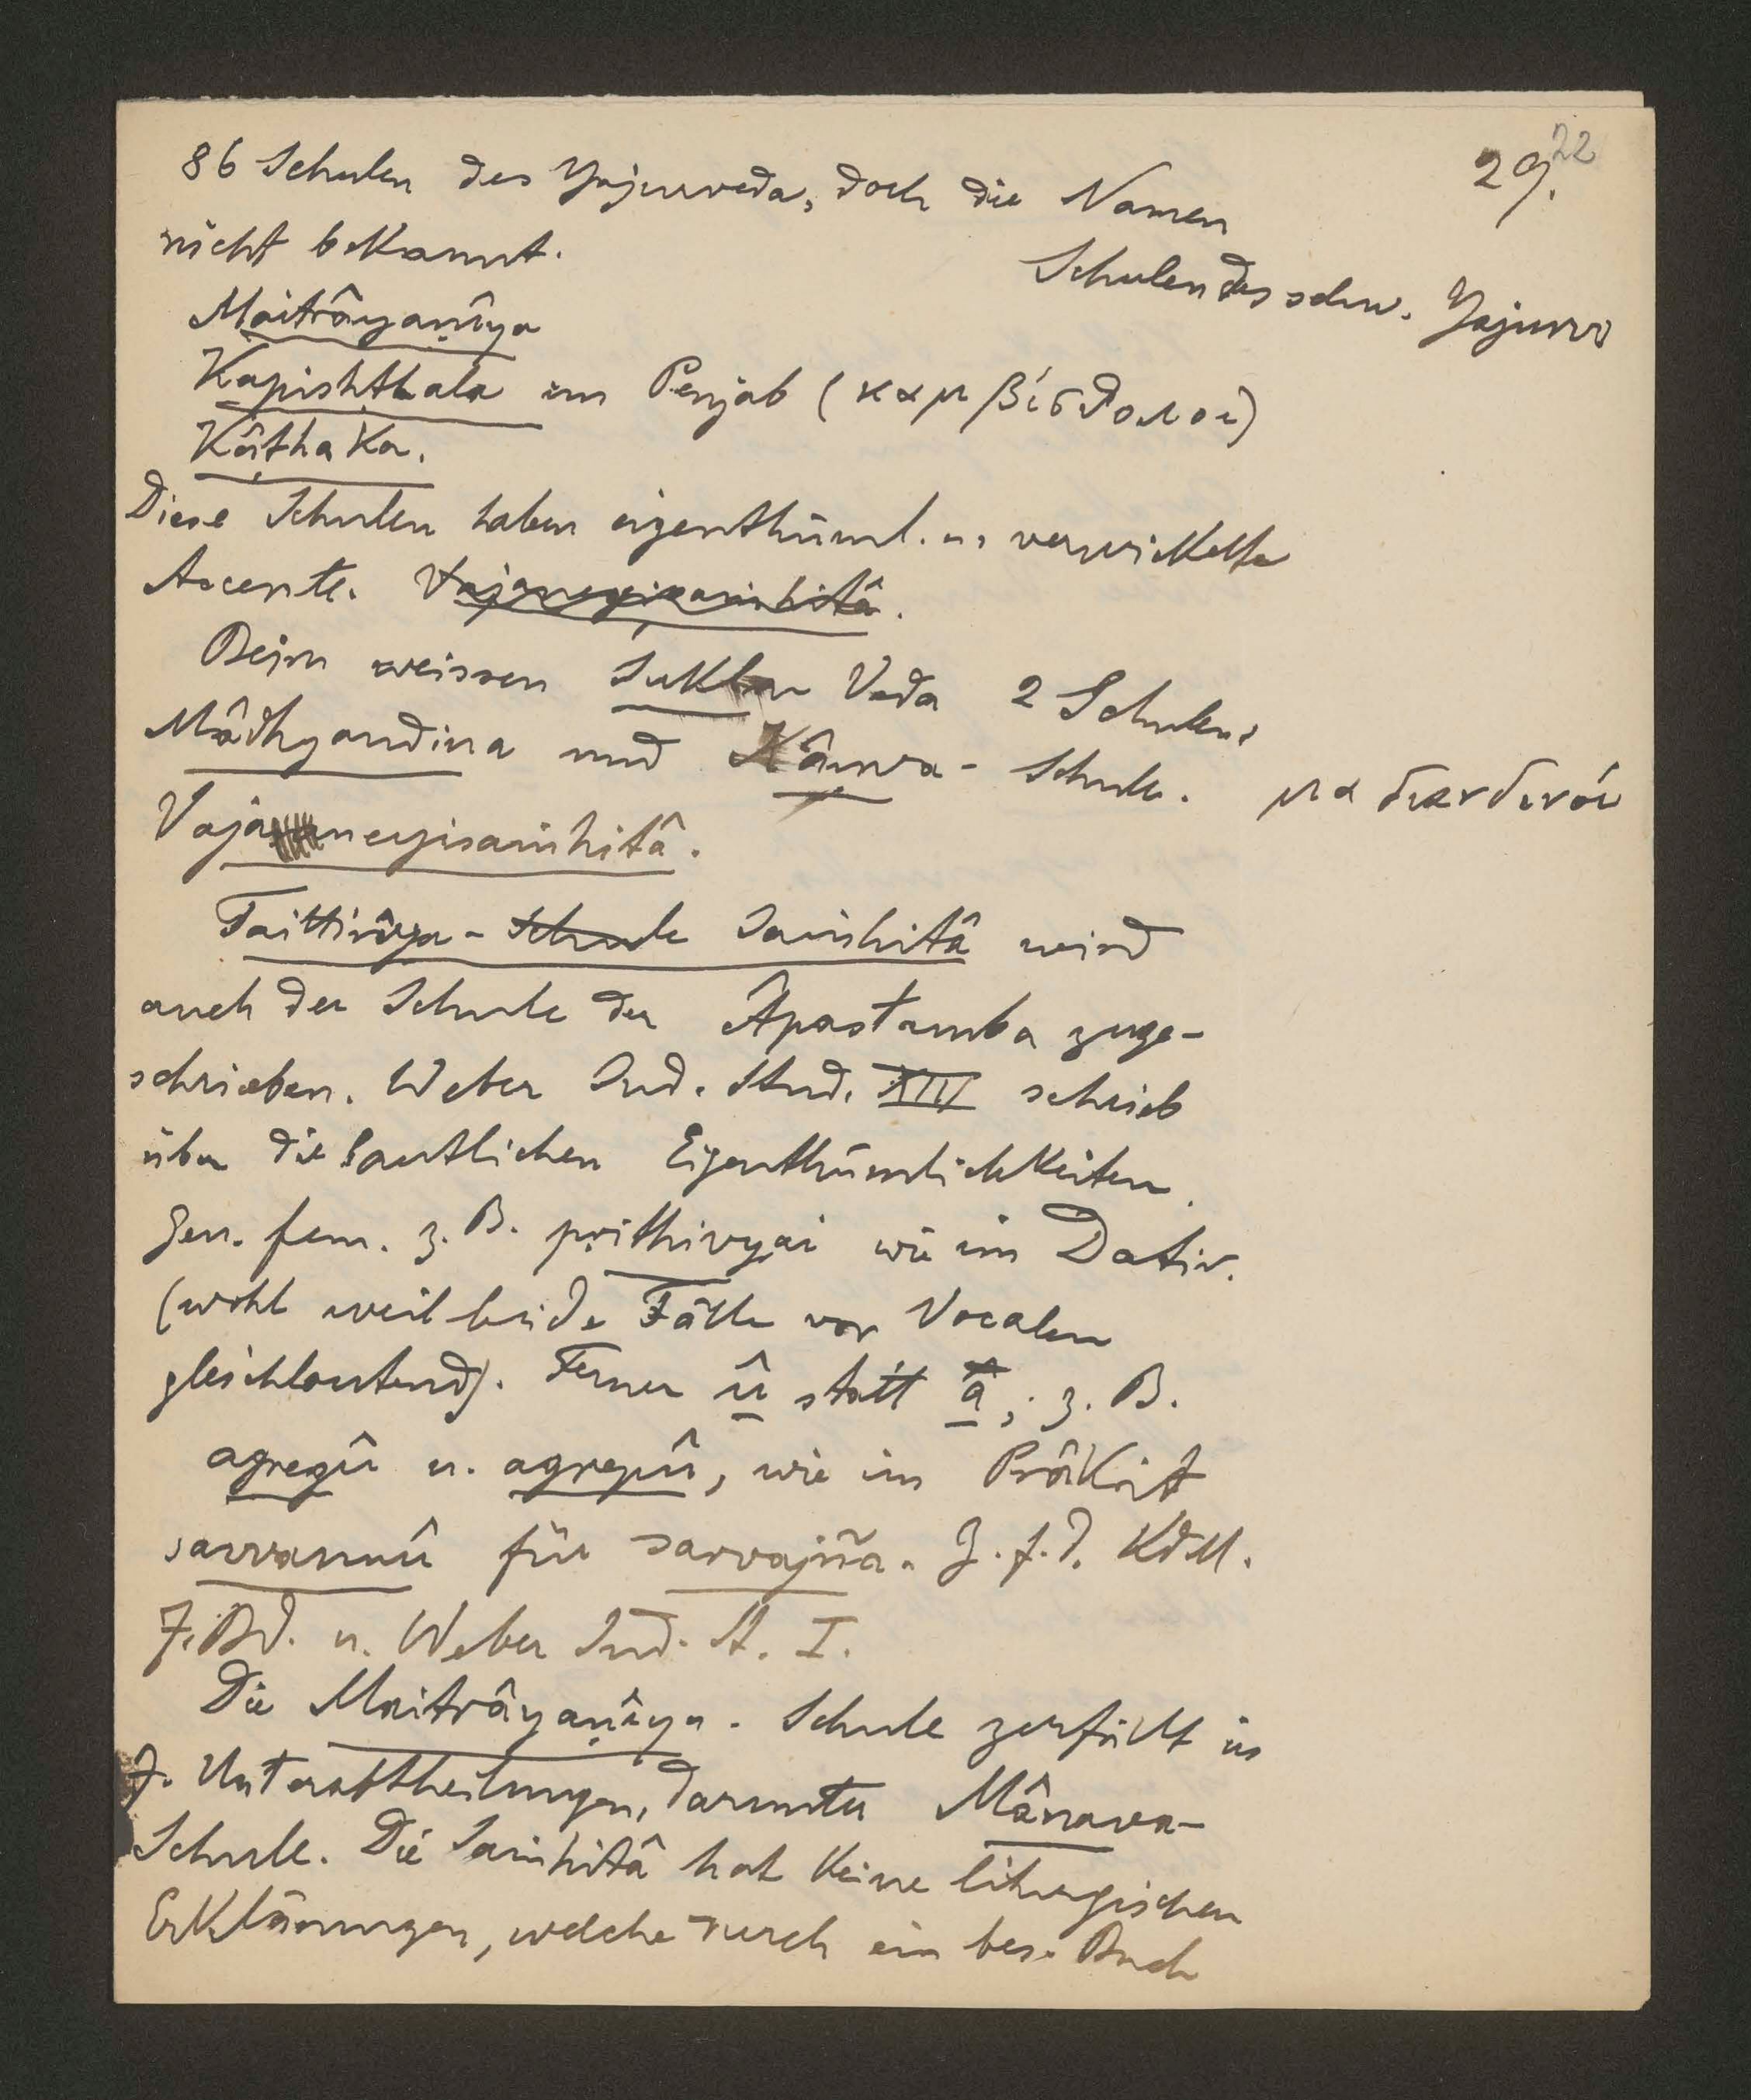 22
29.
86 Schulen des Yajurveda, doch die Namen
nicht bekannt.
Schulen des schw. Yajurv
Maitrâyaṇîya
Kapishṭhala im Penjab (καμβίσθολοι)
Kâṭhaka.
Diese Schulen haben eigenthüml. u. verwickelte
Accente. Vajaneyisaṁhitâ.
Beim weissen Sukla Veda 2 Schulen:
Mâdhyandina und Kâṇva- Schule. μαδιανδινοί
Vajaneyisaṁhitâ.
Taittirîya-Schule Saṁhitâ wird
auch der Schule der Âpastamba zuge-
schrieben. Weber Ind. Stud. XIII schrieb
über die lautlichen Eigenthümlichkeiten.
Gen. fem. z. B. pṛithivyai wie im Dativ.
(wohl weil beide Fälle vor Vocalen
gleichlautend). Ferner û statt â, z. B.
agregû u. agrepû, wie im Prâkrit
savvannû für sarvajña. Z. f. d. KdM.
7. Bd. u. Weber Ind. St. I.
Die Maitrâyaṇîya-Schule zerfällt in
7. Unterabtheilungen, darunter Mânava-
Schule. Die Saṁhitâ hat keine liturgischen
Erklärungen, welche durch ein bes. Buch